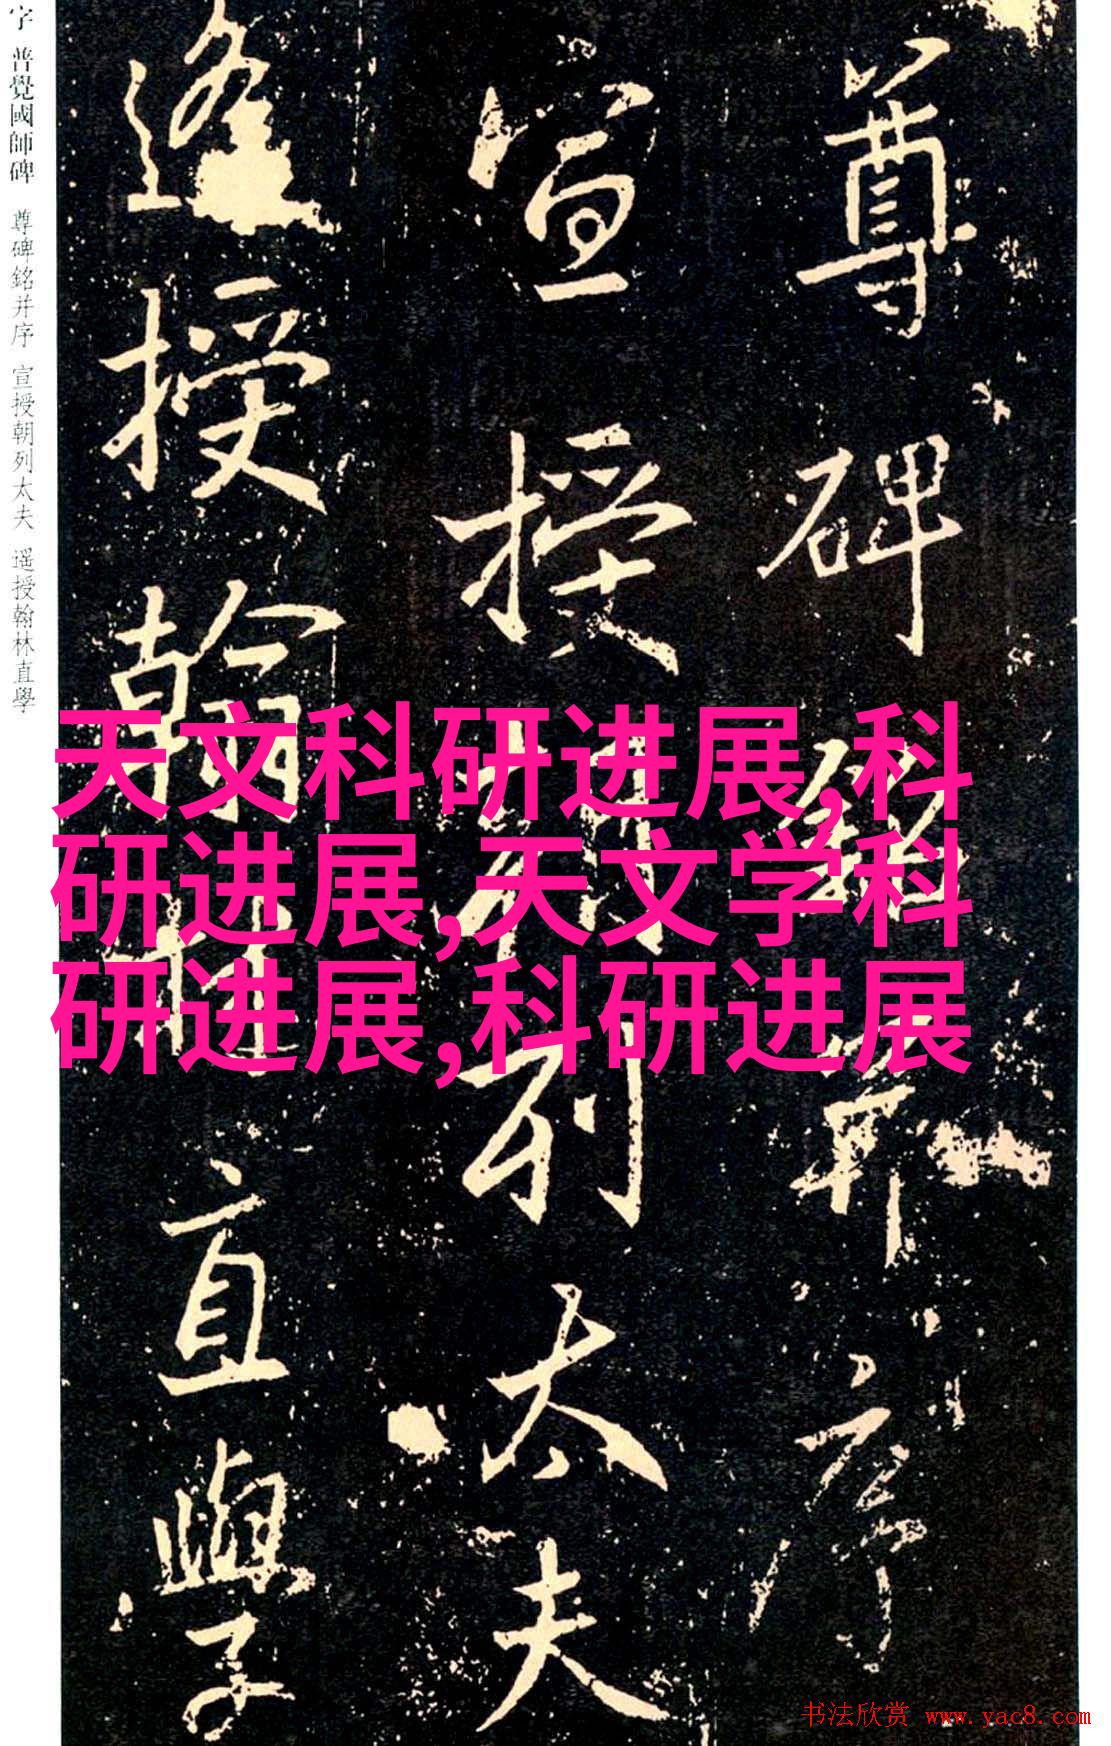 字 普覺國師碑 尊碑銘并序 宣授朝列太夫 遥授翰林直學
尊碑銘并序
宣授朝列太夫
遥授翰林直學
天文科研进展,科
研进展,天文学科
研进展,科研进展
书法欣赏 www.yac8.com